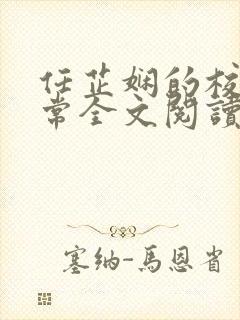 任芷娴的校
常全文閱讀
塞纳-馬恩省